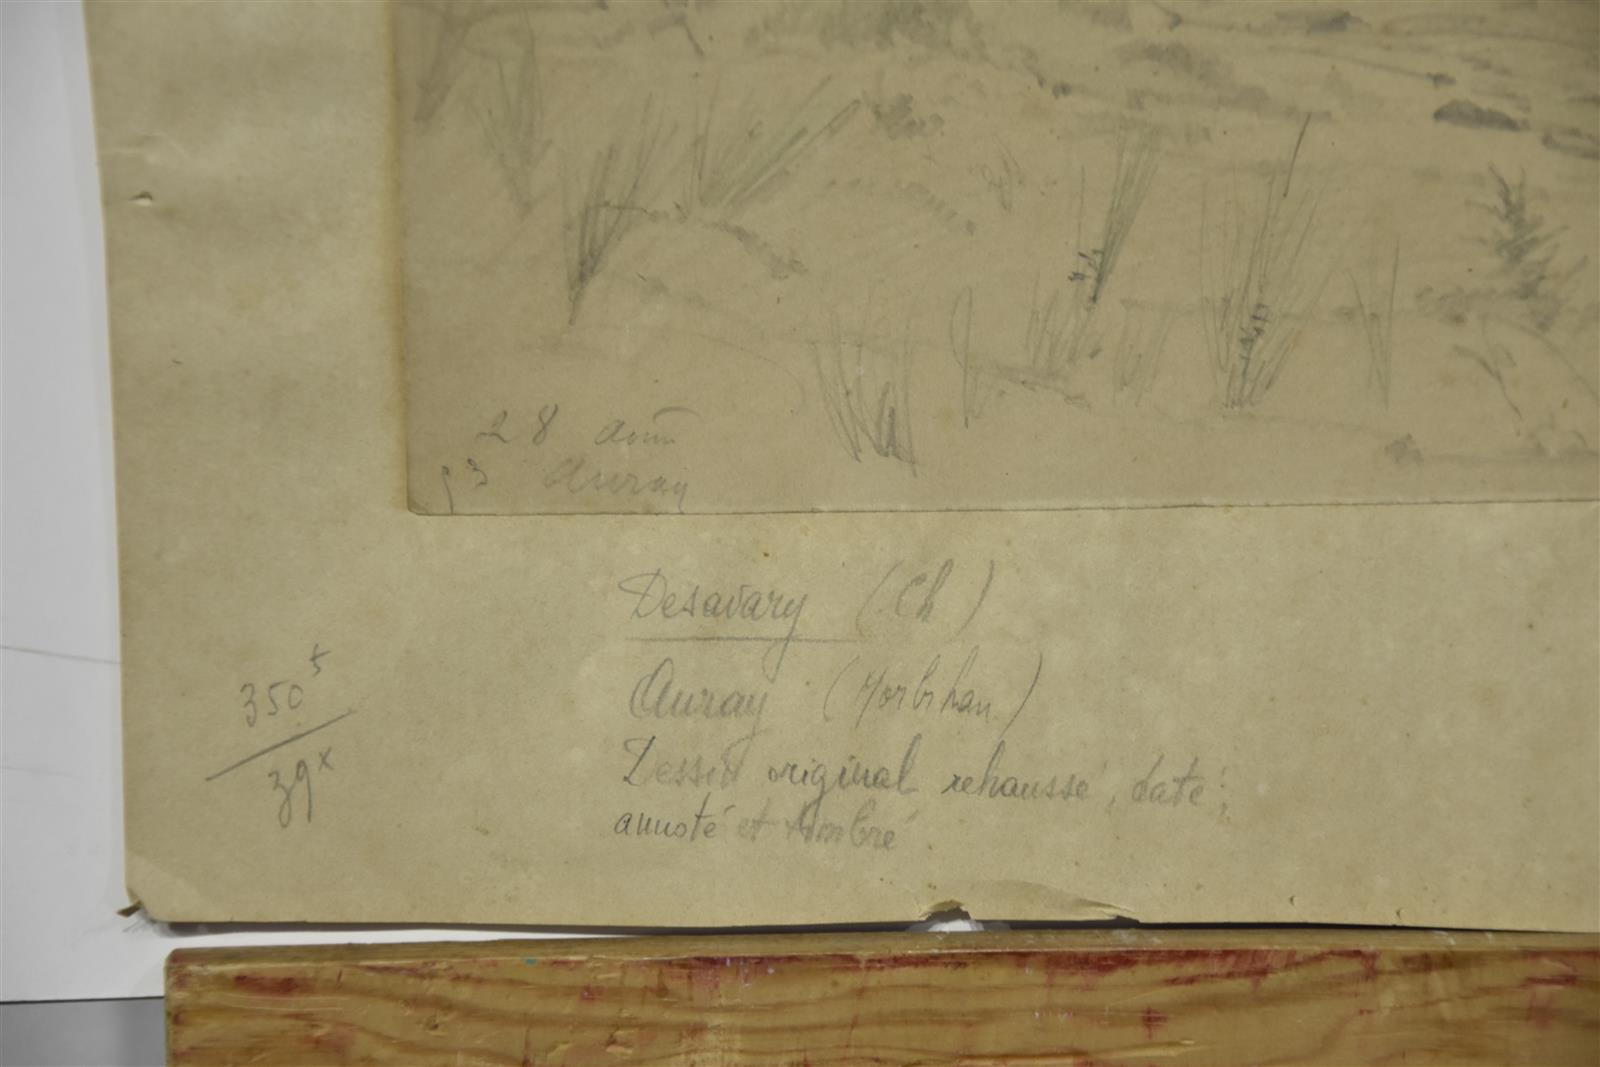 28 août
93 Auray
Desavary (Ch)
Auray (Morbihan)
Dessin original rehaussé, daté,
annoté et timbré
350⁵
39ˣ